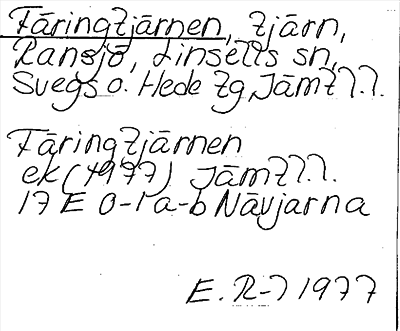 Täringtjärnen, tjärn,
Ransjö, Linsells sn,
Svegs o. Hede tg, Jämtl.l.
Täringtjärnen
ek (1977) Jämtl.l.
17 E 0-1 a-b Nävjarna
E. R-l 1977